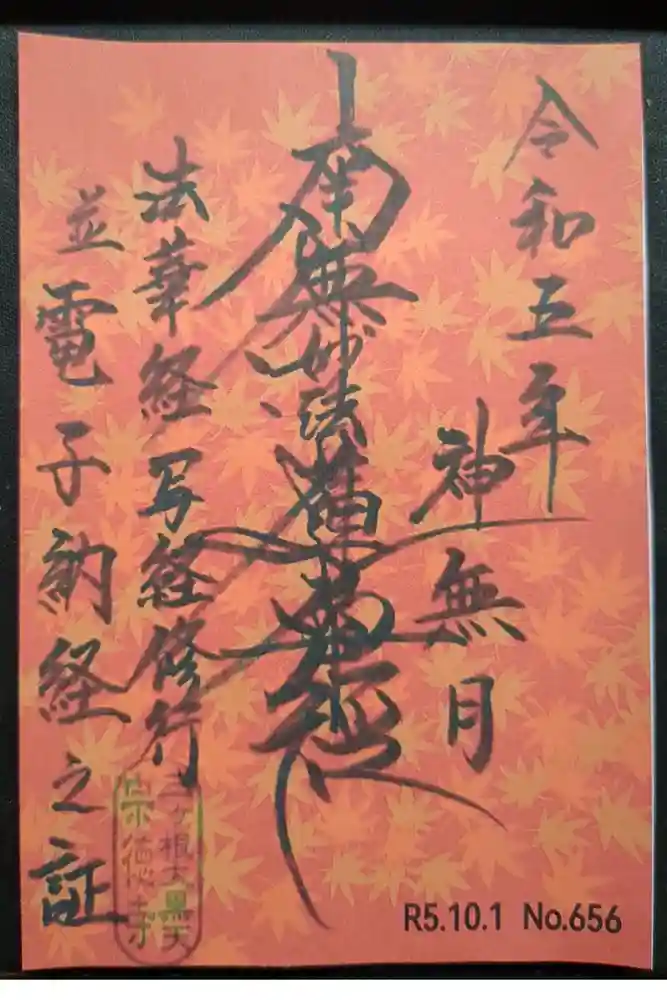 令和五年
神無月
南無妙法蓮華経
法華経写経修行
並電子納経之証
三ヶ根大黒天
宗徧寺
R5.10.1 No.656